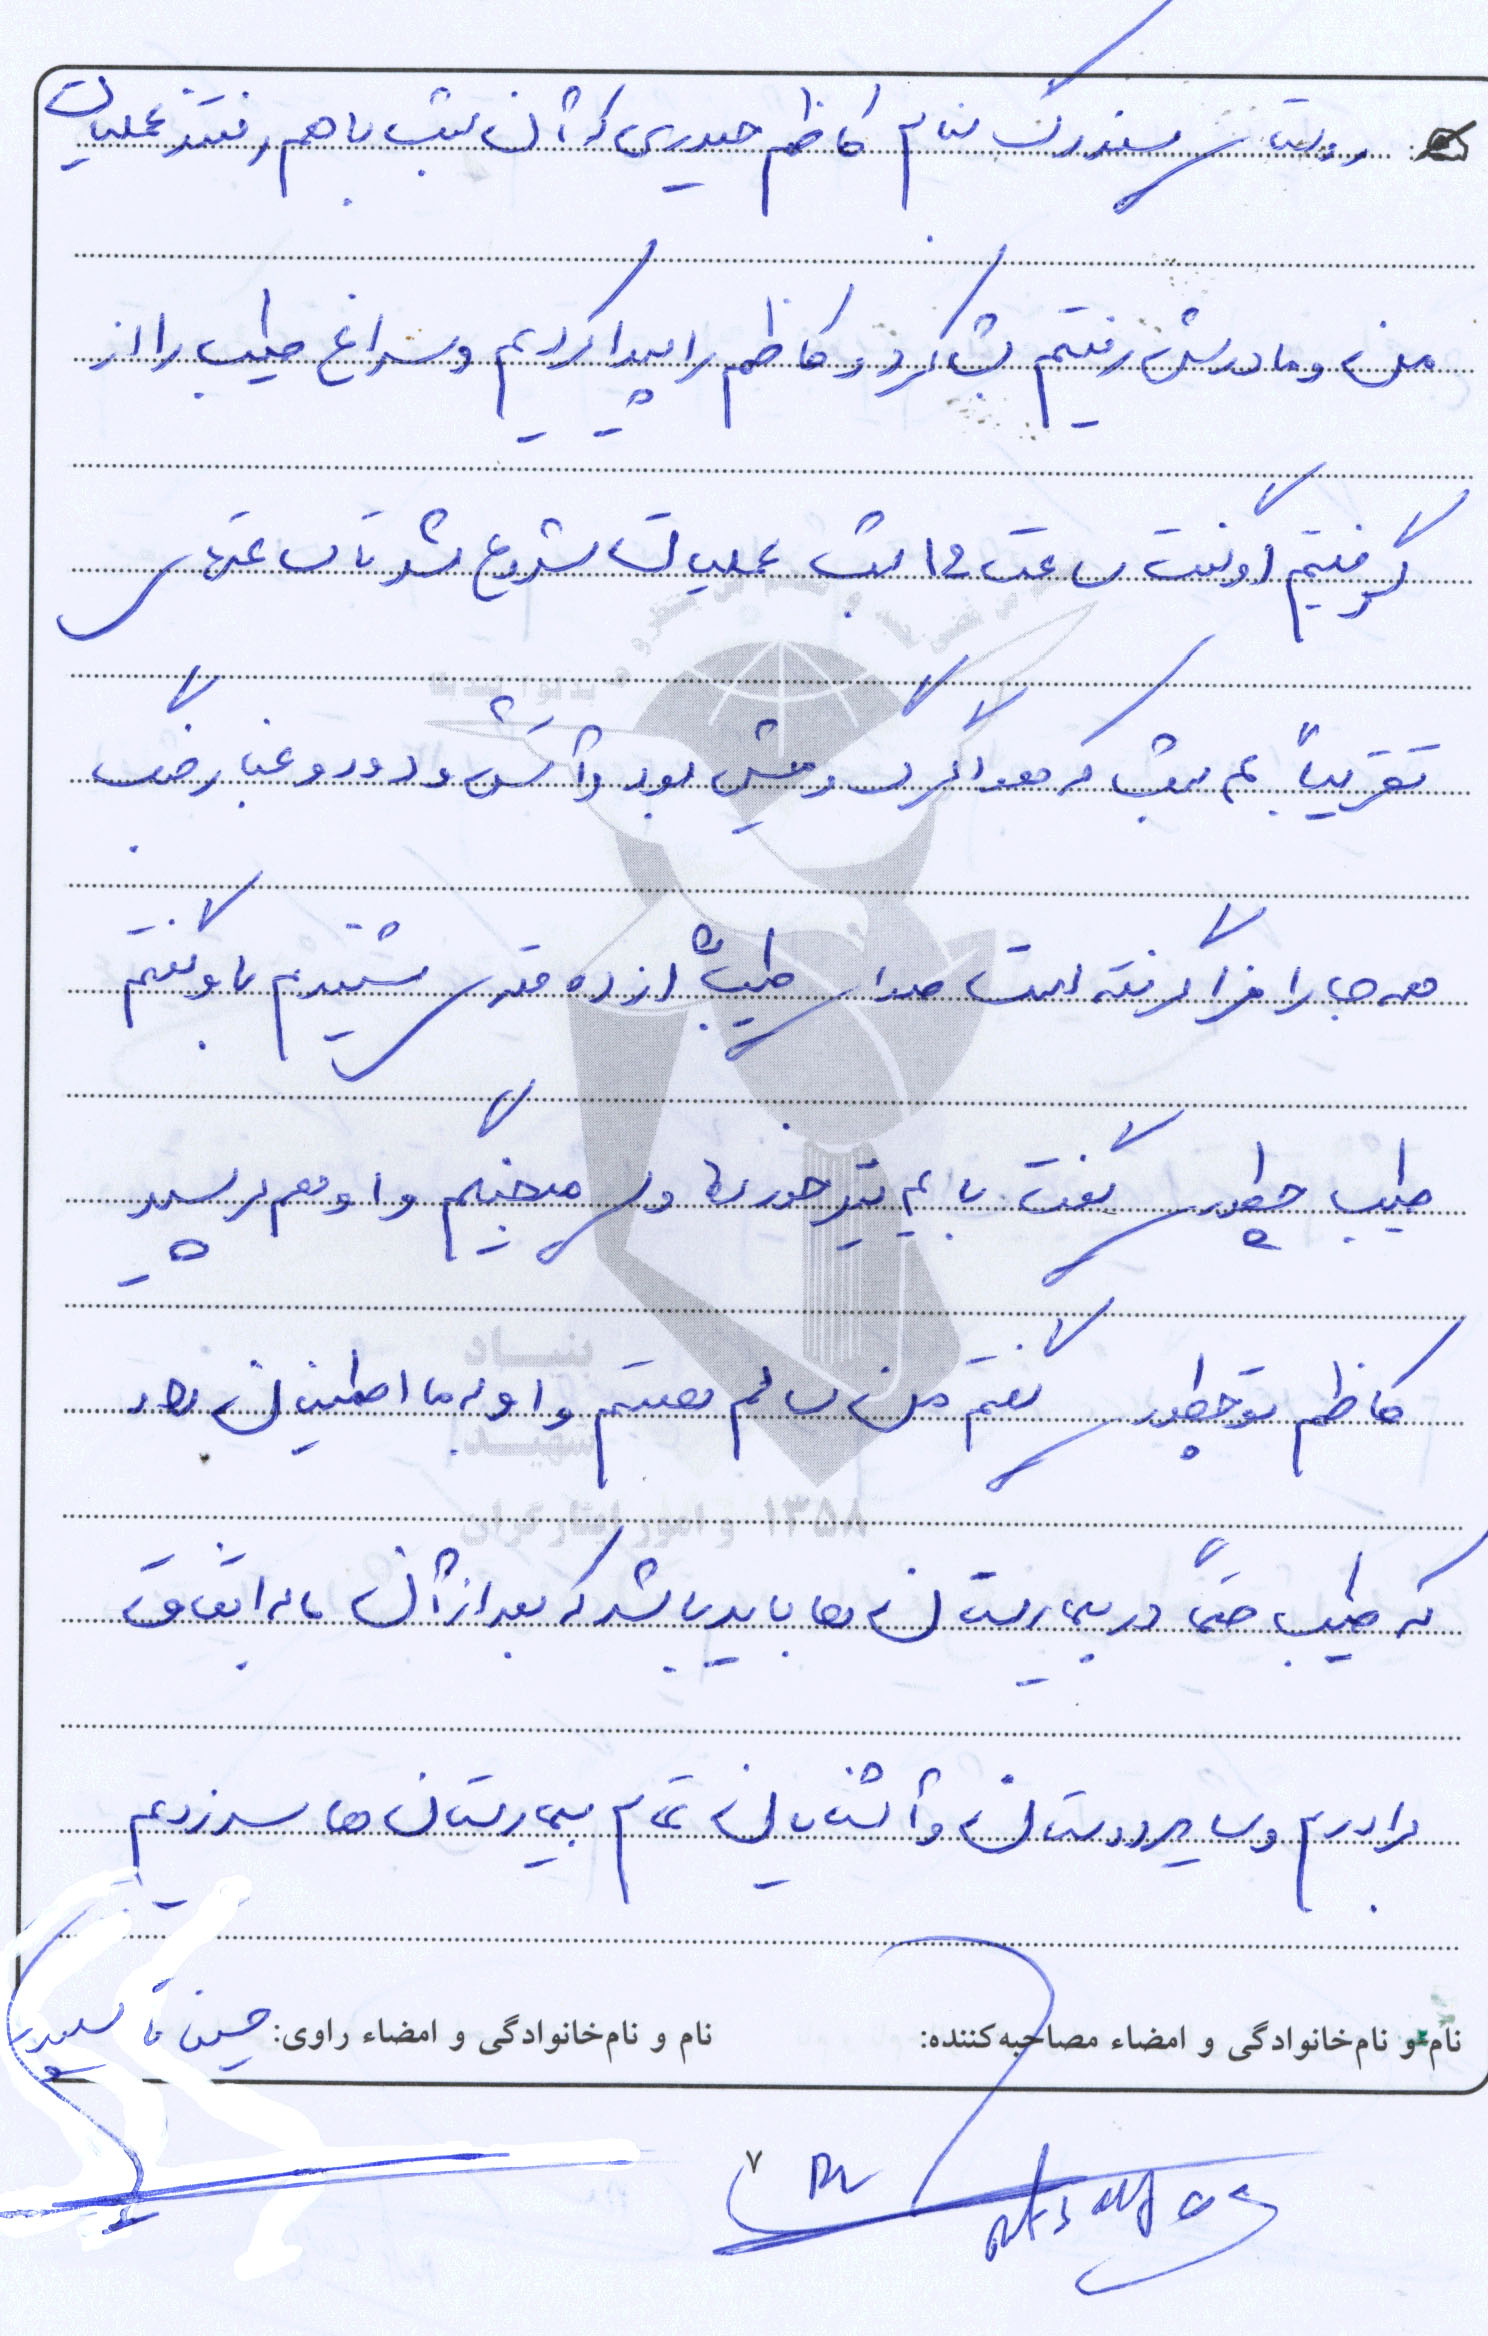 دوستی بنام کاظم حیدری که آن شب با هم رفتند عملیات
من و مادرش رفتیم و کاظم را پیدا کردیم و سراغ طیب را از
گرفتیم او گفت ساعت ۱۲ شب عملیات شروع شد تا ساعتهای
تقریباً نیم شب که هوا گرگ و میش بود و آتش و دود و غبار
همه جا را فرا گرفته است صدای طیب از ده قدمی شنیدم با او گفتم
طیب چطوری گفت پایم تیر خورده ولی میجنگم و او هم پرسید
کاظم تو چطوری گفتم من سالم هستم و او به ما اطمینان داد
که طیب حتماً در بیمارستان ها باید باشد که بعد از آن ما به اتفاق
برادرم و سایر دوستان و آشنایان تمام بیمارستان ها سر زدیم
نام و نام‌خانوادگی و امضاء مصاحبه‌کننده: نام و نام‌خانوادگی و امضاء راوی:
۷
بنیاد
شهید
و امور ایثارگران ۱۳۵۸